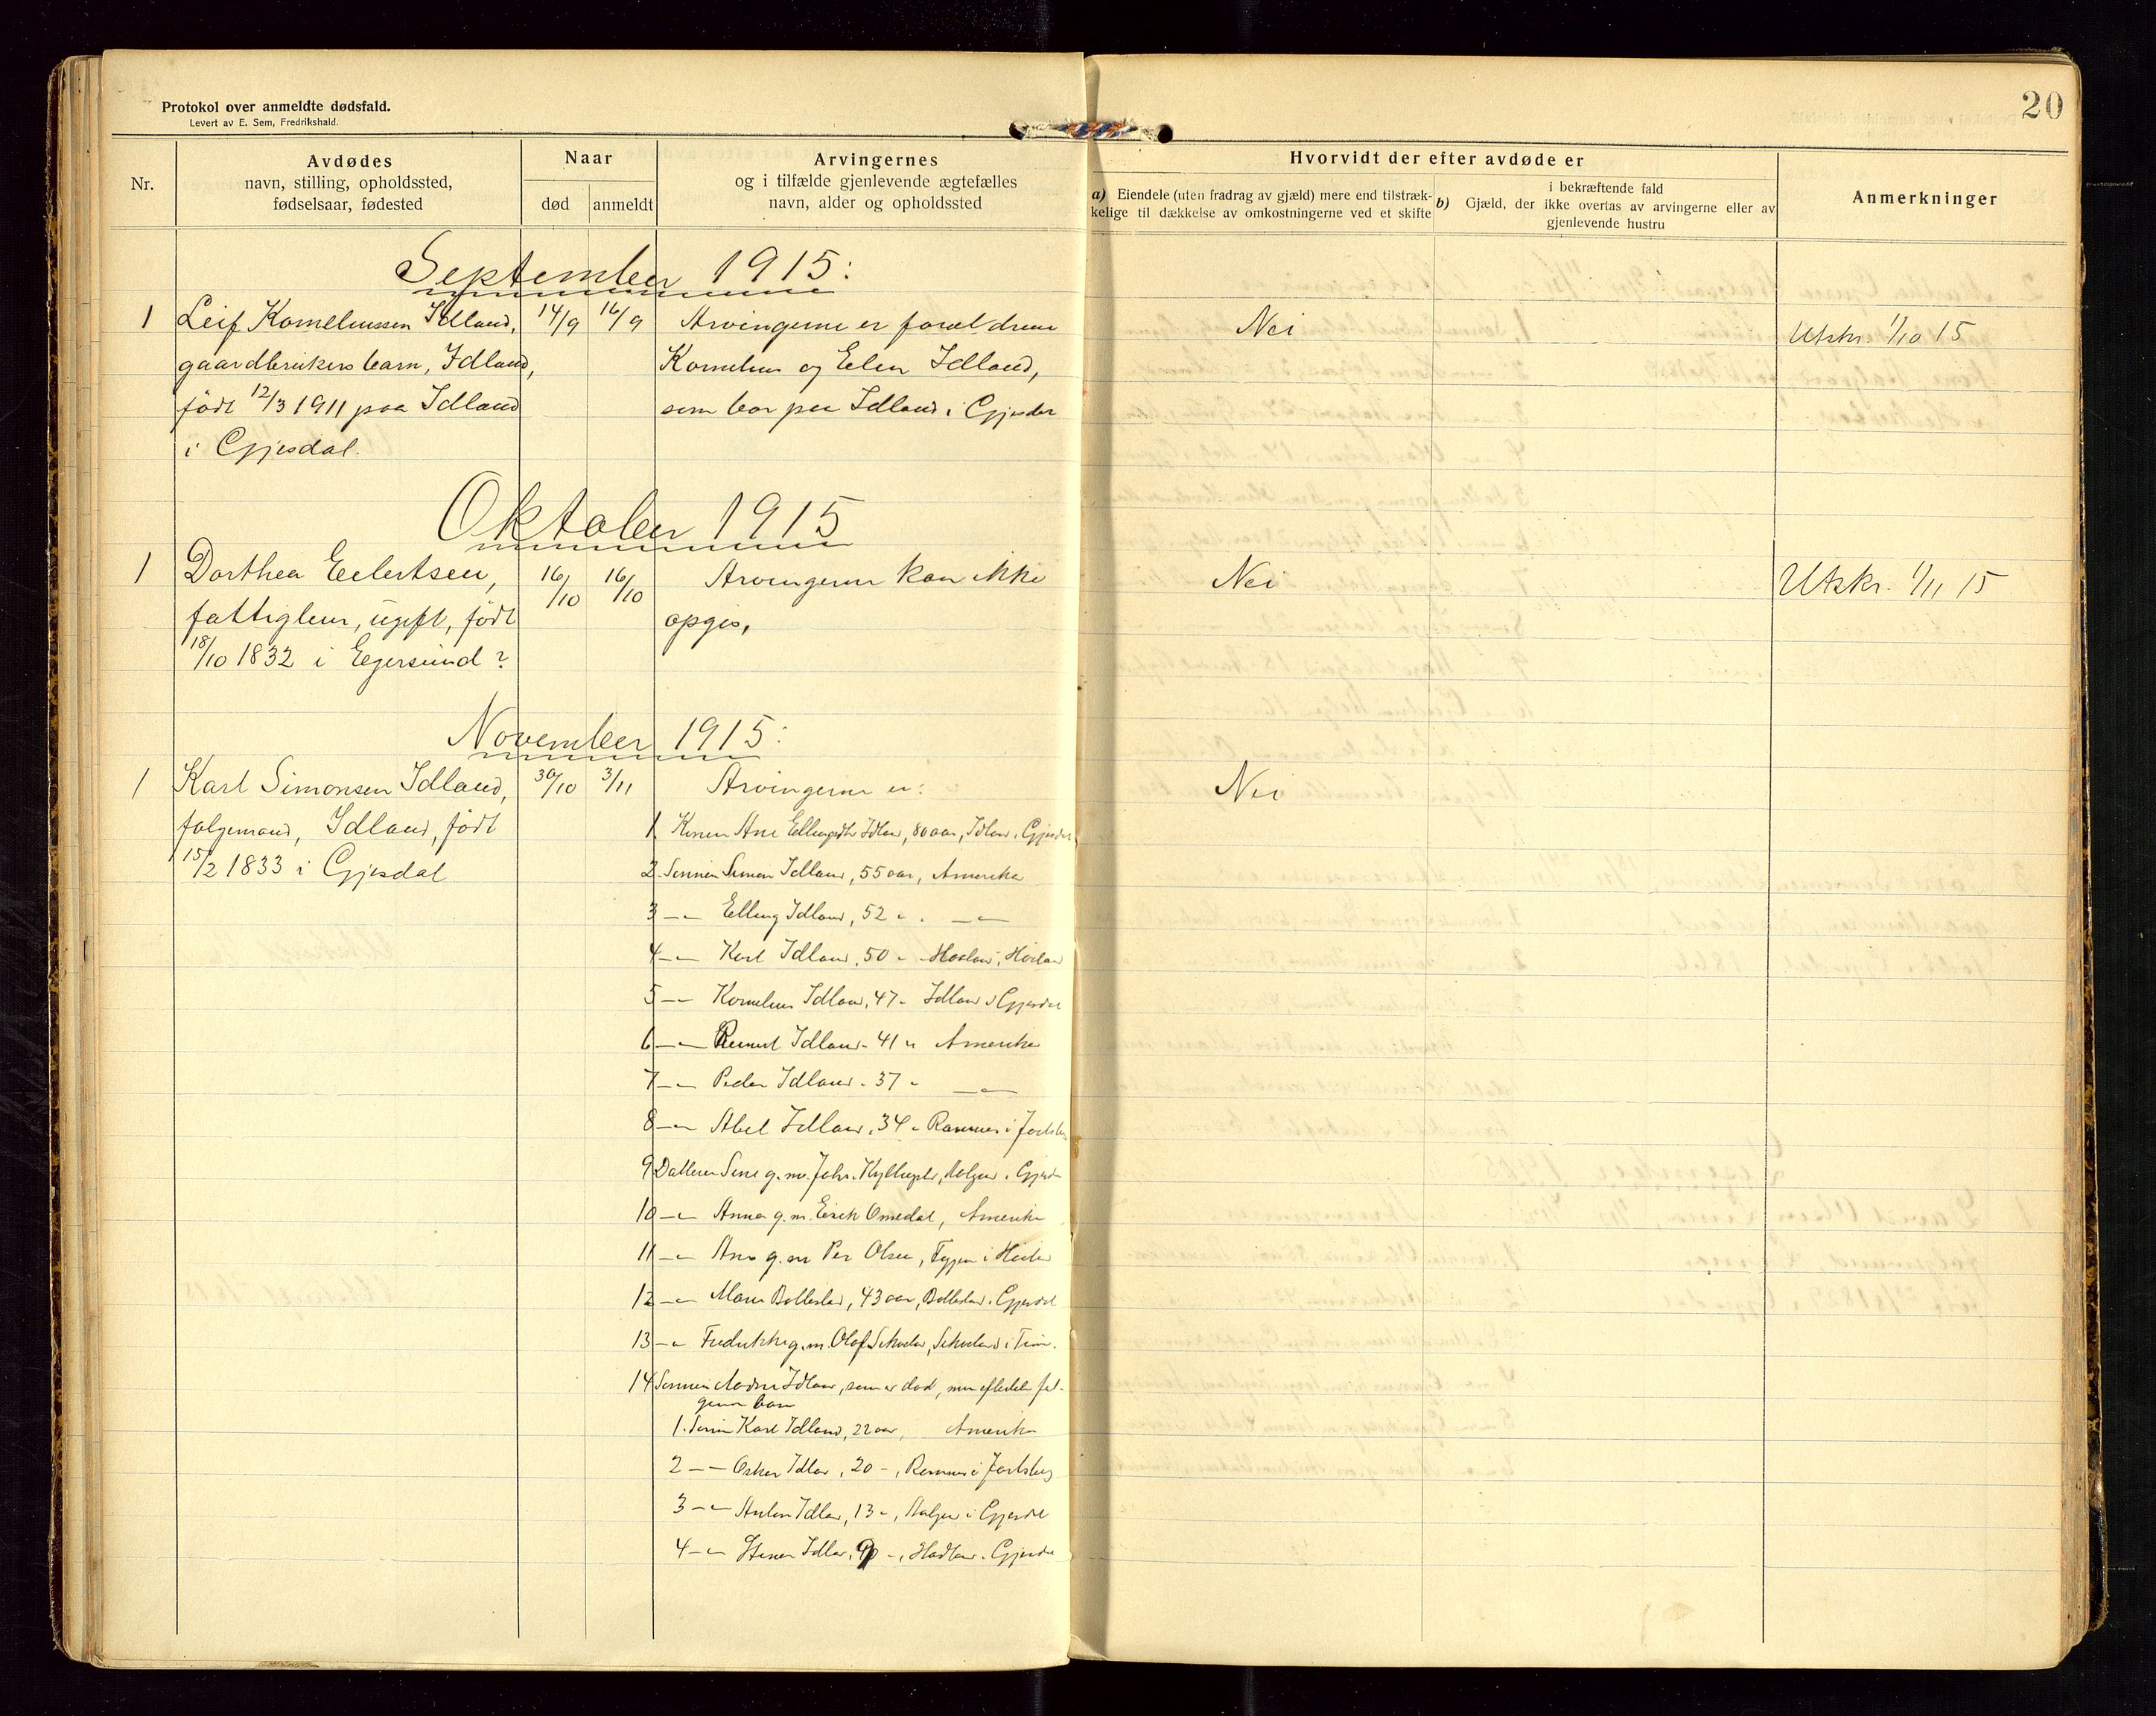 Protokol over anmeldte dødsfald.
Levert av E. Sem, Fredrikshald.
20
Nr.
Avdødes
navn, stilling, opholdssted,
fødselsaar, fødested
Naar
død
anmeldt
Arvingernes
og i tilfælde gjenlevende ægtefælles
navn, alder og opholdssted
Hvorvidt der efter avdøde er
a) Eiendele (uten fradrag av gjæld) mere end tilstræk-
kelige til dækkelse av omkostningerne ved et skifte
i bekræftende fald
b) Gjæld, der ikke overtas av arvingerne eller av
gjenlevende hustru
Anmerkninger
September 1915:
1
Leif Korneliussen Idland,
gaardbrukers barn, Idland,
født 12/3 1911 paa Idland
i Gjesdal.
14/9
16/9
Arvingerne er forældrene
Kornelius og Elen Idland,
som bor paa Idland i Gjesdal
Nei
Utskr. 1/10 15
Oktober 1915
1
Dorthea Eilertsen,
fattiglem, ugift, født
18/10 1832 i Egersund?
16/10
16/10
Arvingerne kan ikke
opgis,
Nei
Utskr. 1/11 15
November 1915:
1
Karl Simonsen Idland,
følgemand, Idland, født
15/2 1833 i Gjesdal
30/10
3/11
Arvingerne er:
Nei
1. Konen Ane Ellingsdtr Idland, 80 aar, Idland i Gjesdal
2. Sønnen Simon Idland, 55 aar, Amerika
3 -"- Elling Idland, 52 " -"-
4 -"- Karl Idland, 50 "
5 -"- Kornelius Idland, 47 " Idland i Gjesdal
6 -"- Idland - 41 " Amerika
7 -"- Peder Idland - 37 " -"-
8 -"- Abel Idland, 34 " Ramnes i Jarlsberg
9 Datteren g.m. Joh. Aalgaard i Gjesdal
10 -"- Anna g.m. Eirik Omedal, Amerika
11 -"- g.m. Per Olsen, i
12 -"- 43 aar, i Gjesdal
13 -"- Fredrikke g.m. Olof i Time.
14 Sønnen Idland, som er død, men efterlater føl-
gende barn
1. Sønn Karl Idland, 22 aar, Amerika
2 -"- Oskar Idland, 20 -, Ramnes i Jarlsberg
3 -"- Anton Idland, 13 -, Aalgaard i Gjesdal
4 -"- Idland, i Gjesdal